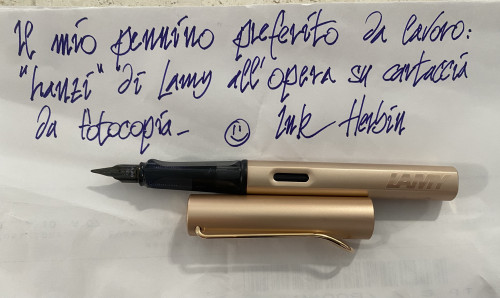 Il mio pennino preferito da lavoro:
"hanzi" di Lamy all'opera su cartaccia
da fotocopia_ ☺ Ink Herbin
LAMY